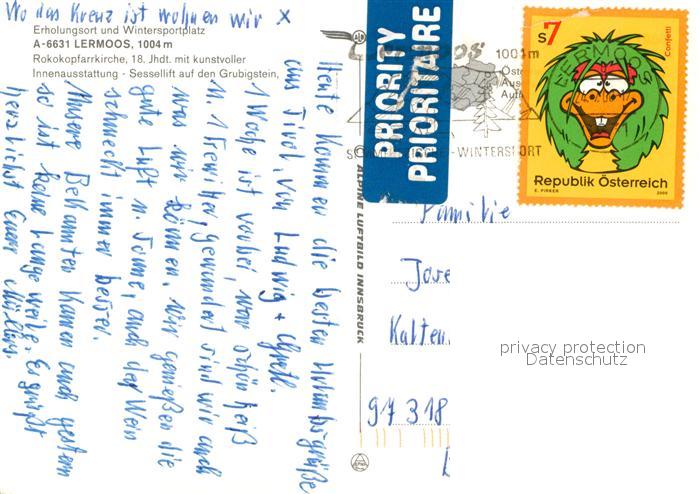 Wo das Kreuz ist wohnen wir x
Erholungsort und Wintersportplatz
A-6631 LERMOOS, 1004 m
Rokokopfarrkirche, 18. Jhdt. mit kunstvoller
Innenausstattung - Sessellift auf den Grubigstein,
Heute kommen die besten Urlaubsgrüße
aus Tirol, von Ludwig +
1 Woche ist vorbei, war schön heiß
u. 1 Gewitter, gewandert sind wir auch
was wir können. Wir genießen die
gute Luft u. Sonne, auch der Wein
schmeckt immer besser.
Unsere Bekannten kamen auch gestern
so ist keine Langeweile. Es grüßt
herzlichst Euere
ALPINE LUFTBILD INNSBRUCK
PRIORITY
PRIORITAIRE
1001m
WINTERSPORT
S7
Confetti
LERMOOS
Republik Österreich
E. PIRKER
2000
Familie
Jose
Kalten
97318
privacy protection
Datenschutz